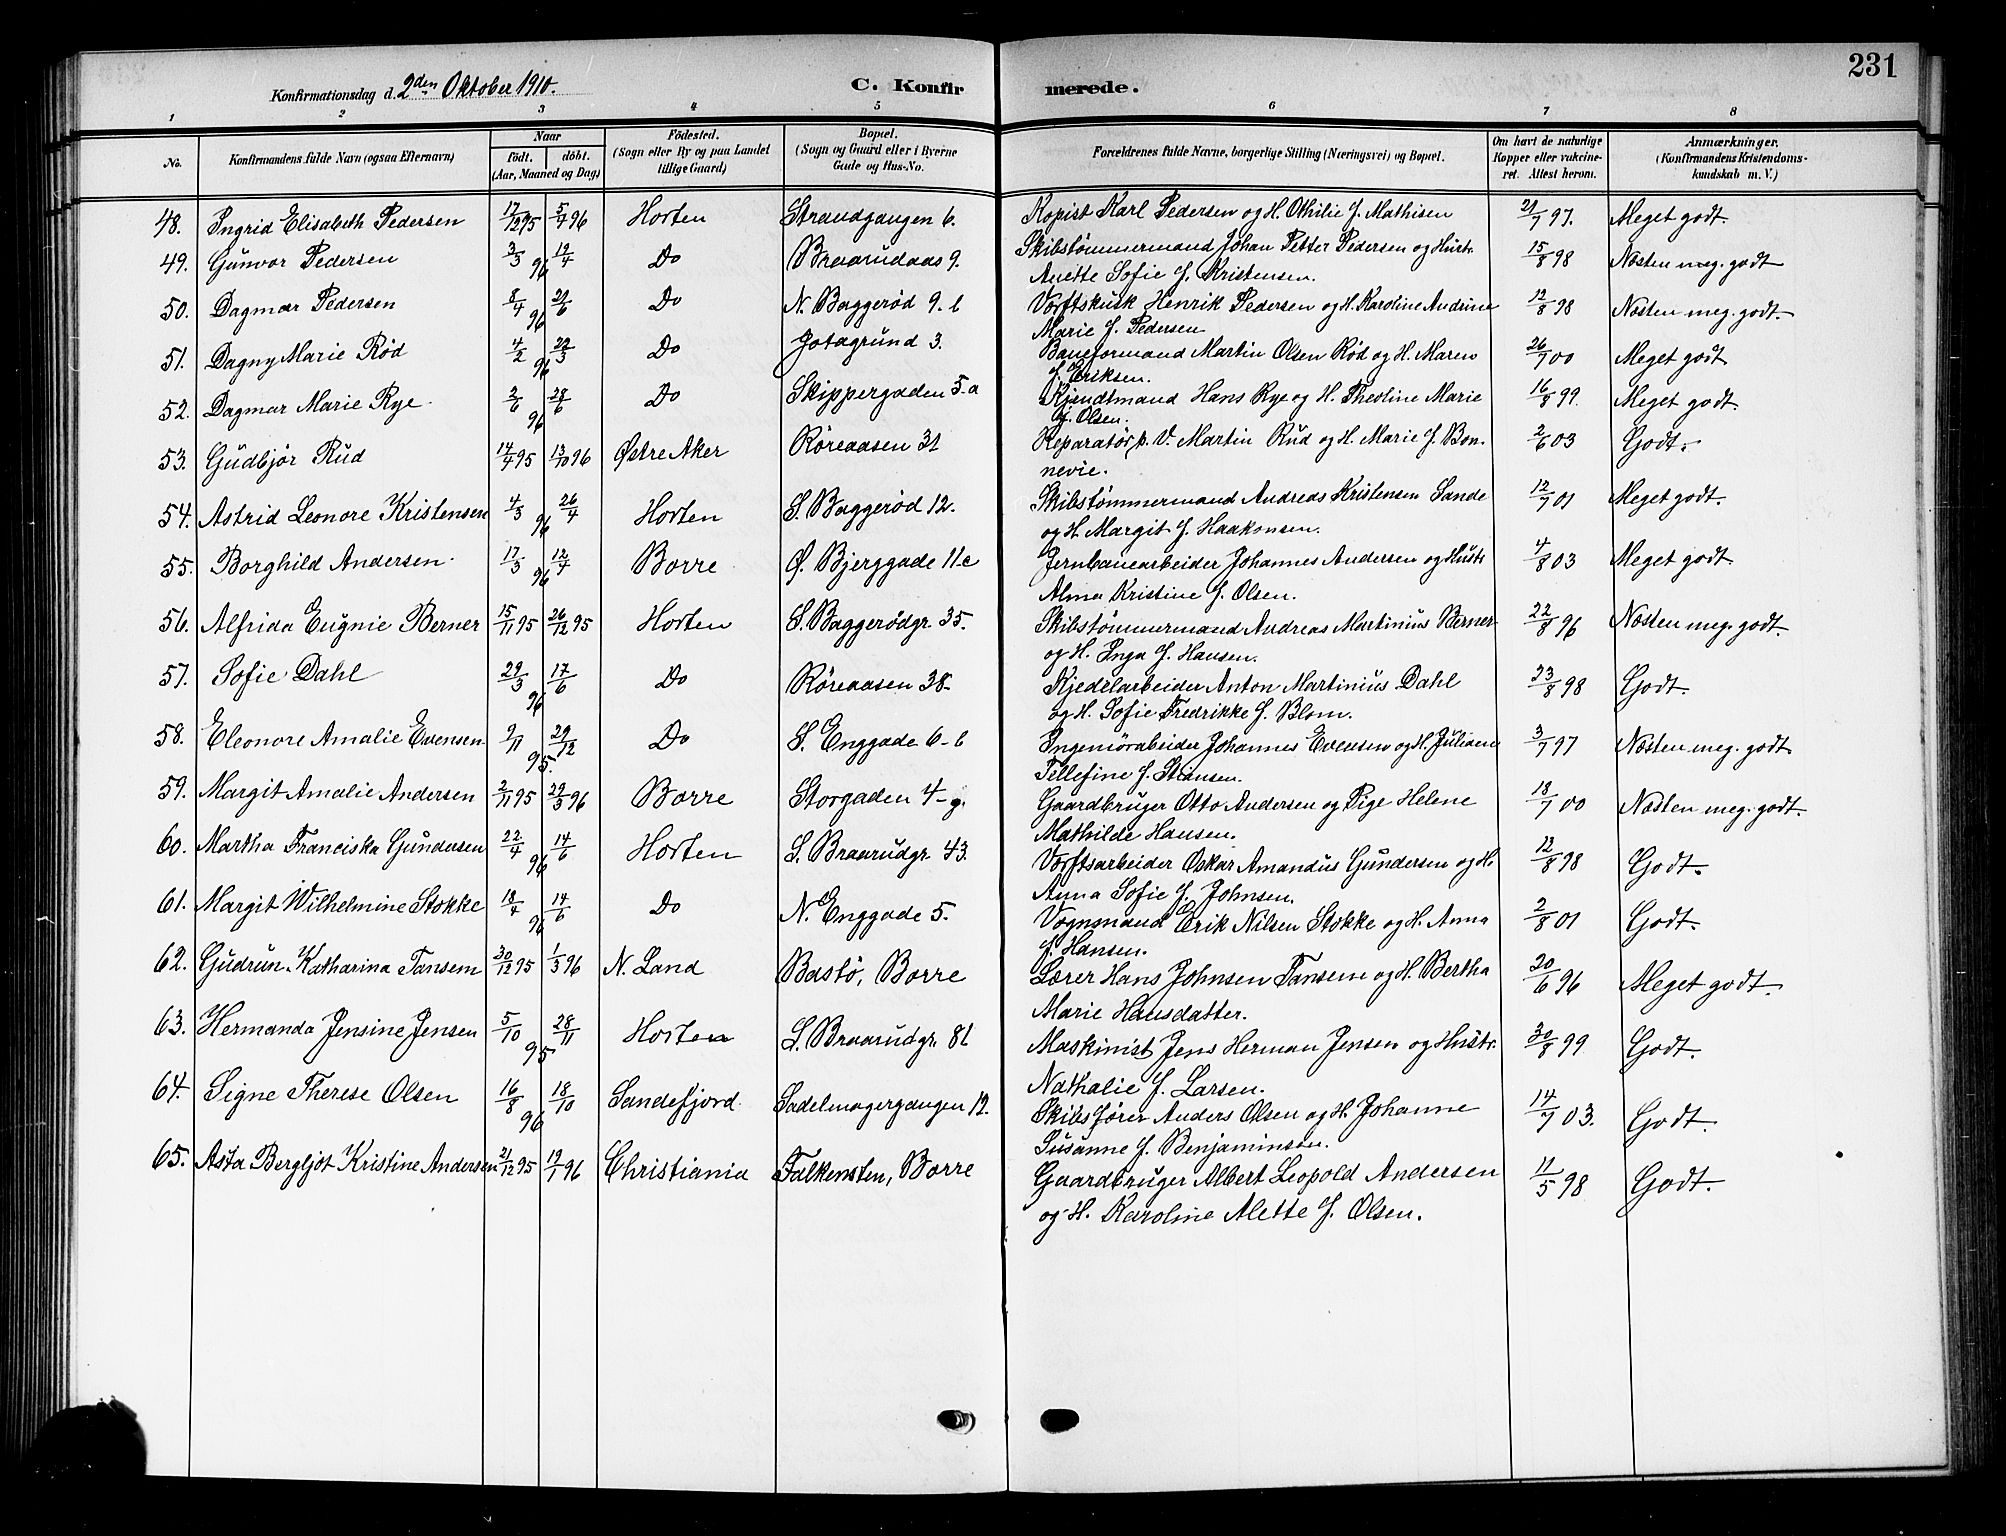 231
Konfirmationsdag d. 2den Oktober 1910. C. Konfirmerede.
1 2 3 4 5 6 7 8
No. Konfirmandens fulde Navn (ogsaa Efternavn) Naar födt. döbt. (Aar, Maaned og Dag) Födested. (Sogn eller By og paa Landet tillige Gaard) Bopæl. (Sogn og Gaard eller i Byerne Gade og Hus-No. Forældrenes fulde Navne, borgerlige Stilling (Næringsvei) og Bopæl. Om havt de naturlige Kopper eller vakcineret. Attest herom. Anmærkninger. (Konfirmandens Kristendomskundskab m. V.)
48. Ingrid Elisabeth Pedersen 17/12 95 5/4 96 Horten Strandgangen 6. Kopist Karl Pedersen og H. Othilie f. Mathisen 21/7 97. Meget godt.
49. Gunvor Pedersen 3/3 96 12/4 Do Braarudaas 9. Skibstømmermand Johan Petter Pedersen og Hustr. 15/8 98 Næsten meg. godt
Anette Sofie f. Kristensen.
50. Dagmar Pedersen 8/4 96 21/6 Do N. Baggerød 9. b Vorftskusk Henrik Pedersen og H. Karoline Andrine 12/8 98 Næsten meg. godt.
Marie f. Pedersen
51. Dagny Marie Rød 4/2 96 22/3 Do Jotagrund 3. Baneformand Martin Olsen Rød og H. Maren 26/7 00 Meget godt
f. Eriksen.
52. Dagmar Marie Rye. 2/6 96 28/6 Do Skippergaden 5.a Kjendtmand Hans Rye og H. Theoline Marie 16/8 99. Meget godt.
f. Olsen.
53. Gudbjør Rud 14/4 95 13/10 96 Østre Aker Røreaasen 31 Reparatør p. V. Martin Rud og H. Marie f. Bon- 2/6 03 Godt.
nevie.
54. Astrid Leonore Kristensen 4/3 96 26/4 Horten S. Baggerød 12. Skibstømmermand Andreas Kristensen Sande 12/7 01 Meget godt.
og H. Margit f. Haakonsen.
55. Borghild Andersen. 17/3 96 12/4 Borre Ø. Bjerggade 11.c Jernbanearbeider Johannes Andersen og Hustr 4/8 03 Meget godt.
Alma Kristine f. Olsen.
56. Alfrida Eugnie Berner 15/11 95 26/12 95 Horten S. Baggerødgr. 35. Skibstømmermand Andreas Martinius Berner 22/8 96 Næsten meg. godt.
og H. Inga f. Hansen.
57. Sofie Dahl 29/3 96 17/6 Do Røreaasen 38. Kjedelarbeider Anton Martinius Dahl 23/8 98 Godt.
og H. Sofie Fredrikke f. Blom.
58. Eleonore Amalie Evensen 9/11 95. 29/12 Do S. Enggade 6-b Ingeniørarbeider Johannes Evensen og H. Juliane 3/7 97 Næsten meg. godt
Tellefine f. Stiansen.
59. Margit Amalie Andersen 2/11 95 29/3 96 Borre Storgaden 4-g. Gaardbruger Otto Andersen og Pige Helene 18/7 00 Næsten meg. godt.
Mathilde Hansen.
60. Martha Franciska Gundersen 22/4 96 14/6 Horten S. Braarudgr. 43. Vorftsarbeider Oskar Amandus Gundersen og H. 12/8 98 Godt.
Anna Sofie f. Johnsen.
61. Margit Wilhelmine Stokke 18/4 96 14/6 Do N. Enggade 5. Vognmand Erik Nilsen Stokke og H. Anna 2/8 01 Godt.
f. Hansen.
62. Gudrun Katharina Tansem 30/12 95 1/3 96 N. Land Bastö, Borre Lærer Hans Johnsen Tansem og H. Bertha 20/6 96 Meget godt.
Marie Hansdatter.
63. Hermanda Jensine Jensen 5/10 95 28/11 Horten S. Braarudgr. 8b Maskinist Jens Herman Jensen og Hustr. 30/8 99. Godt.
Nathalie f. Larsen.
64. Signe Therese Olsen 16/8 96 18/10 Sandefjord Sadelmagergangen 12. Skibsfører Anders Olsen og H. Johanne 14/7 03. Godt.
Susanne f. Benjaminsen.
65. Asta Bergljot Kristine Andersen 21/12 95 19/7 96 Christiania Falkensten, Borre Gaardbruger Albert Leopold Andersen 11/5 98 Godt.
og H. Karoline Alette f. Olsen.